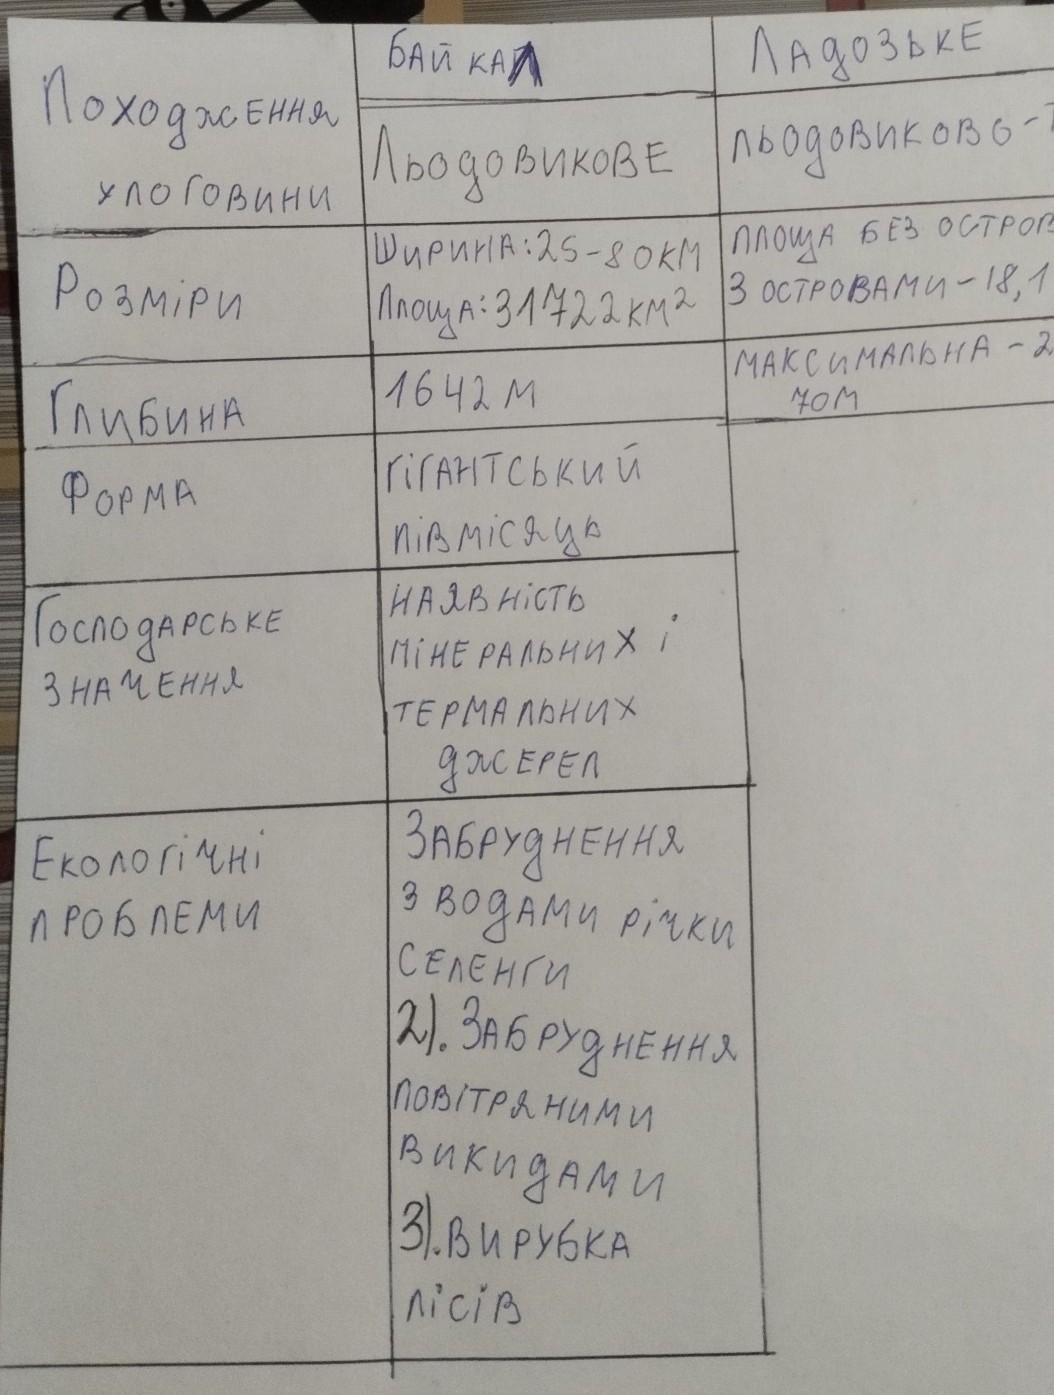 БАЙКАЛ
ЛАДОЗЬКЕ
ПОХОДЖЕННЯ
УЛОГОВИНИ
ЛЬОДОВИКОВЕ
ЛЬОДОВИКОВО-Т
РОЗМІРИ
ШИРИНА:25-80КМ
ПЛОЩА:31722КМ²
ПЛОЩА БЕЗ ОСТРОВ
З ОСТРОВАМИ-18,1
ГЛИБИНА
1642М
МАКСИМАЛЬНА-2
70М
ФОРМА
ГІГАНТСЬКИЙ
ПІВМІСЯЦЬ
ГОСПОДАРСЬКЕ
ЗНАЧЕННЯ
НАЯВНІСТЬ
МІНЕРАЛЬНИХ І
ТЕРМАЛЬНИХ
ДЖЕРЕЛ
ЕКОЛОГІЧНІ
ПРОБЛЕМИ
ЗАБРУДНЕННЯ
З ВОДАМИ РІЧКИ
СЕЛЕНГИ
2). ЗАБРУДНЕННЯ
ПОВІТРЯНИМИ
ВИКИДАМИ
3). ВИРУБКА
ЛІСІВ